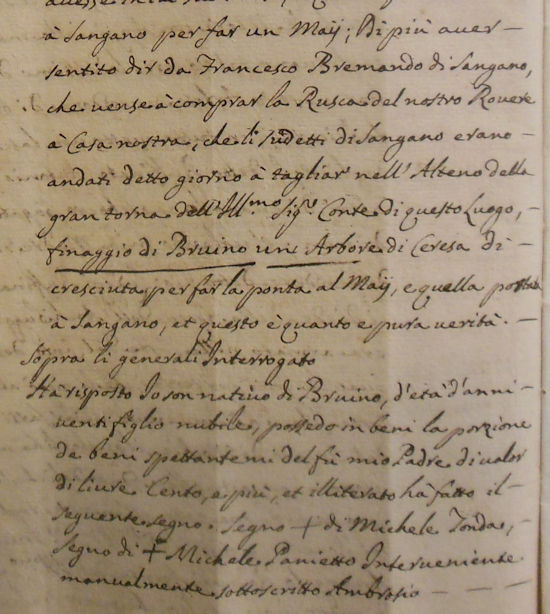 à Sangano per far un Maÿ; Di più aver
sentito dir da Francesco Bremando di Sangano,
che vense à comprar la Rusca del nostro Rovere
à Casa nostra, che li sudetti di Sangano erano
andati detto giorno à tagliar nell' Alteno della
gran torna dell' Ill.mo Sig.r Conte di questo Luogo,
finaggio di Bruino un Arbore di Ceresa di
cresciuta per far la ponta al Maÿ, e quella portata
à Sangano, et questo è quanto e pura verità.
Sopra li generali Interrogato
Hà risposto Io son nativo di Bruino, d'età d'anni
venti figlio nubile, possedo in beni la porzione
de beni spettantemi del fù mio Padre di valor
di livre Cento, e più, et illiterato hà fatto il
seguente segno. Segno + di Michele Tonda,
segno di + Michele Panietto Interveniente
manualmente sottoscritto Ambrosio